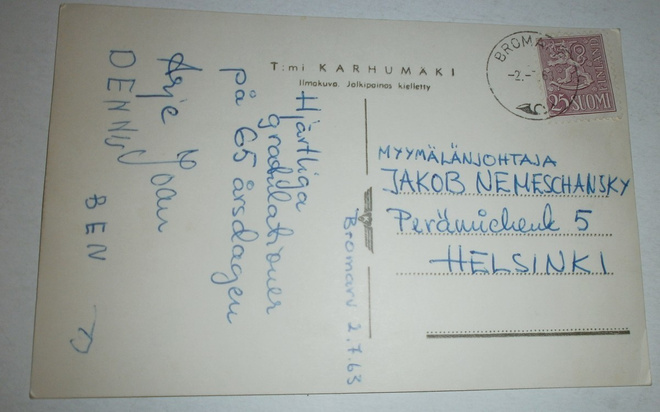 T:mi KARHUMÄKI
Ilmakuva. Jälkipainos kielletty
Hjärtliga
gratulationer
på 65 årsdagen
Arje Joan
DENNIS
BEN
Bromarv 2.7.63
BROMA
-2.-
25 SUOMI
FINLAND
MYYMÄLÄNJOHTAJA
JAKOB NEMESCHANSKY
Perämiehenk 5
HELSINKI